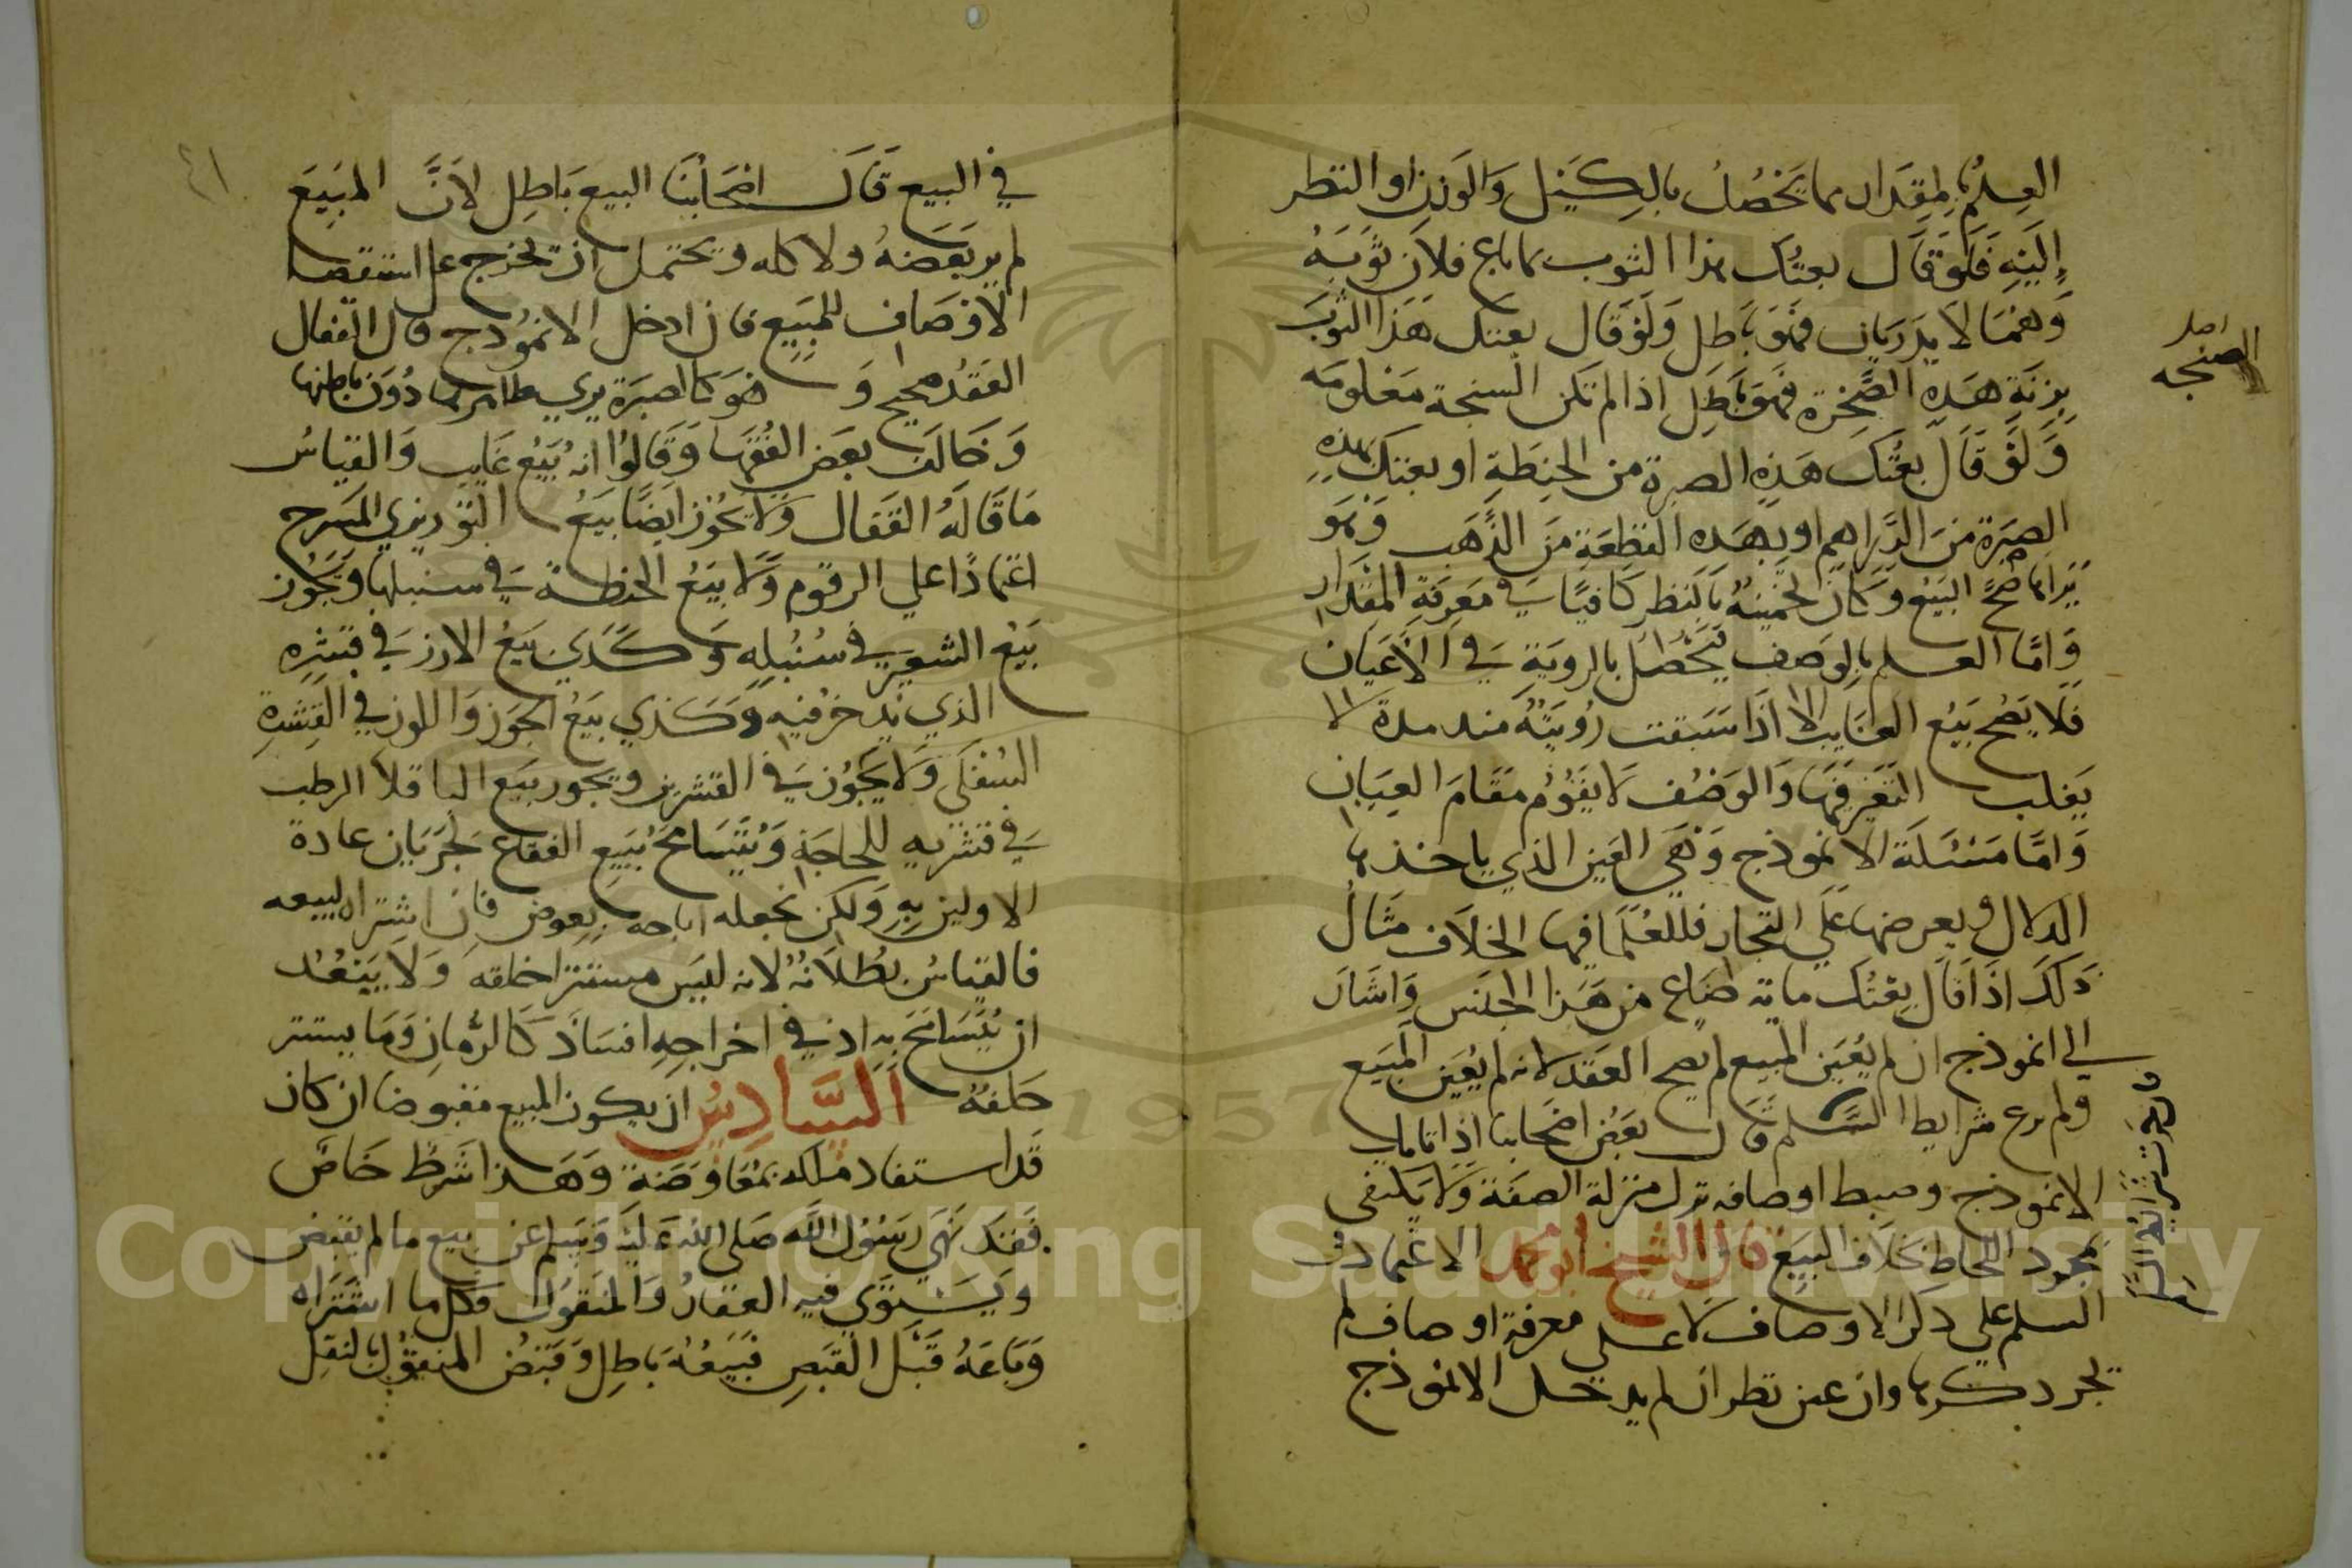 العلم بالمقدار مما يحصل بالكيل والوزن او النظر
إليه فلو قال بعتك هذا الثوب بما باع فلان ثوبه
وهما لا يدريان فهو باطل ولو قال بعتك هذا الثوب
بزنة هذه الصخرة فهو باطل اذا لم تكن السنجة معلومه
ولو قال بعتك هذه الصبرة من الحنطة او بعتك بهذه
الصبرة من الدراهم او بهذه القطعة من الذهب وهو
يراها صح البيع وكان تخمينه بالنظر كافيا في معرفة المقدار
واما العلم بالوصف يحصل بالروية في الاعيان
فلا يصح بيع الغايب الا اذا سبقت رؤيته منذ مدة لا
يغلب التغير فيها والوصف لا يقوم مقام العيان
واما مسئلة الانموذج وهي العين الذي ياخذها
الدلال ويعرضها علي التجار فللعلما فيها الخلاف مثال
ذلك اذا قال بعتك ماية صاع من هذا الجنس واشار
الي انموذج ان لم يعين المبيع لم يصح العقد لانه لم يعين المبيع
ولم يرع شرايط السلم قال بعض اصحابنا اذا تامل
الانموذج وضبط اوصافه نزل منزلة الصفة ولا يكتفى
بمجرد اللحاظ بخلاف البيع قال الشيخ أبو محمد الاعتماد في
السلم علي ذكر الاوصاف لا على معرفة اوصاف لم
تجر ذكرها وان عين نظر ان لم يدخل الانموذج
اصل
الصنجه
في البيع قال اصحابنا البيع باطل لأن المبيع
لم ير بعضه ولا كله ويحتمل ان تخرج على استقصا
الاوصاف للمبيع فان ادخل الانموذج قال القفال
العقد صحيح وهو كالصبرة يري ظاهرها دون باطنها
وخالف بعض الفقها وقالوا انه بيع غايب والقياس
ما قاله القفال ولا يجوز ايضا بيع التوزيزي المسرح
اعتمادا علي الرقوم ولا بيع الحنطة في سنبلها ويجوز
بيع الشعير في سنبله وكذي بيع الارز في قشره
الذي يدخر فيه وكذي بيع الجوز واللوز في القشرة
السفلى ولا يجوز في القشرين ويجوز بيع الباقلا الرطب
في قشريه للحاجة ويتسامح ببيع الفقاع لجريان عادة
الاولين به ولكن نجعله اباحه بعوض فان اشتراه ليبيعه
فالقياس بطلانه لانه ليس مستترا خلقه ولا يبعد
ان يتسامح به اذ في اخراجه افساد كالرمان وما يستتر
خلقة السادس ان يكون المبيع مقبوضا ان كان
قد استفاد ملكه بمعاوضة وهذا شرط خاص
فقد نهي رسول الله صلى الله عليه وسلم عن بيع ما لم يقبض
ويستوي فيه العقار والمنقول فكل ما اشتراه
وباعه قبل القبض فبيعه باطل وقبض المنقول بالنقل
٤١
Copyright © King Saud University
1957